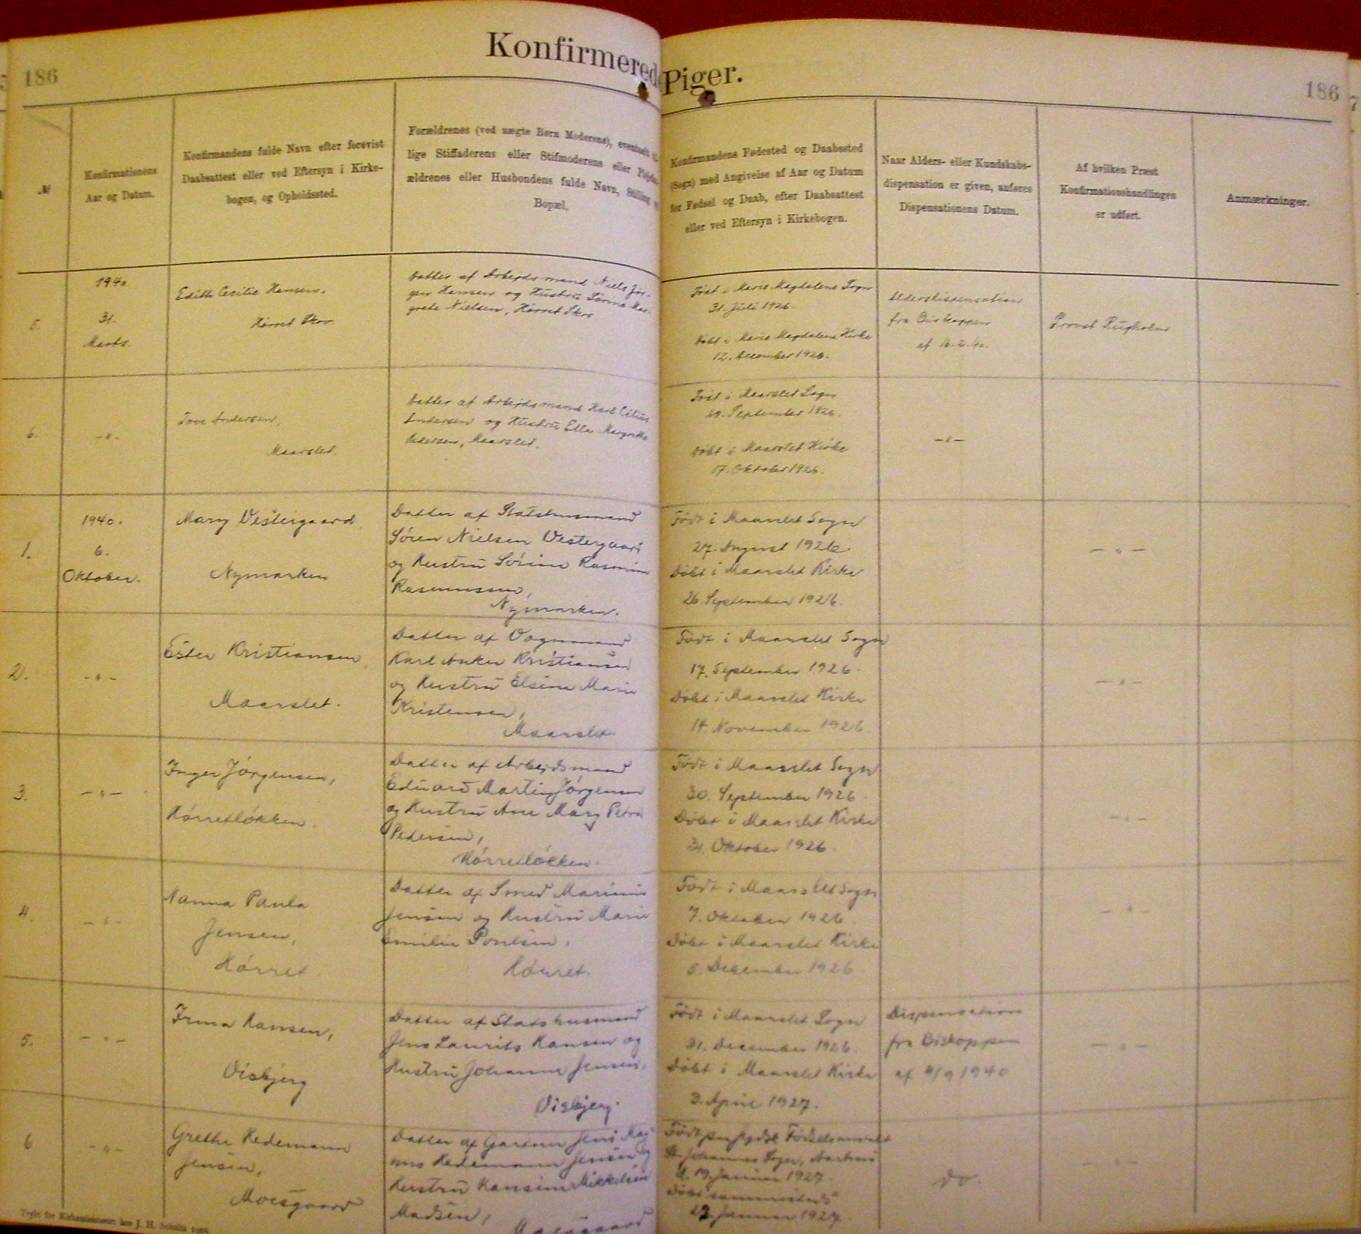 186
Konfirmerede Piger.
186
№
Konfirmationens
Aar og Datum.
Konfirmandens fulde Navn efter forevist
Daabsattest eller ved Eftersyn i Kirke-
bogen, og Opholdssted.
Forældrenes (ved uægte Børn Moderens), eventuelt
lige Stiffaderens eller Stifmoderens eller
ældrenes eller Husbondens fulde Navn, Stilling
Bopæl.
Konfirmandens Fødested og Daabssted
(Sogn) med Angivelse af Aar og Datum
for Fødsel og Daab, efter Daabsattest
eller ved Eftersyn i Kirkebogen.
Naar Alders- eller Kundskabs-
dispensation er given, anføres
Dispensationens Datum.
Af hvilken Præst
Konfirmationshandlingen
er udført.
Anmærkninger.
5.
1940
31.
Marts.
Edith Cecilie Hansen.
Hørret Skov.
Datter af Arbejdsmand Niels Jør-
gen Hansen og Hustru Mar-
grete Nielsen, Hørret Skov
Født i Marie Magdalene Sogn
31. Juli 1926.
Døbt i Marie Magdalene Kirke
12. December 1926.
Aldersdispensation
fra Biskoppen
Provst Rugholm
6.
-"-
Tove Andersen,
Maarslet.
Datter af Arbejdsmand Karl
Andersen og Hustru Ella Margrethe
Pedersen, Maarslet.
Født i Maarslet Sogn
September 1926.
Døbt i Maarslet Kirke
17. Oktober 1926.
-"-
1.
1940.
6.
Oktober.
Mary Vestergaard
Nymarken
Datter af Statshusmand
Søren Nielsen Vestergaard
og Hustru Sørine Rasmine
Rasmussen,
Nymarken.
Født i Maarslet Sogn
27. August 1926
Døbt i Maarslet Kirke
26. September 1926.
-"-
2.
-"-
Ester Kristiansen,
Maarslet.
Datter af Vognmand
Karl Anker Kristiansen
og Hustru Elsine Marie
Kristensen,
Maarslet
Født i Maarslet Sogn
17. September 1926.
Døbt i Maarslet Kirke
14. November 1926.
-"-
3.
-"-
Inger Jørgensen,
Hørretløkken.
Datter af Arbejdsmand
Eduard Martin Jørgensen
og Hustru Ane Mary Petra
Pedersen,
Hørretløkken.
Født i Maarslet Sogn
30. September 1926.
Døbt i Maarslet Kirke
31. Oktober 1926.
-"-
4.
-"-
Nanna Paula
Jensen,
Hørret.
Datter af Smed Marinus
Jensen og Hustru Marie
Emilie Poulsen,
Hørret
Født i Maarslet Sogn
7. Oktober 1926.
Døbt i Maarslet Kirke
5. December 1926.
-"-
5.
-"-
Irma Hansen,
Visbjerg
Datter af Statshusmand
Jens Laurits Hansen og
Hustru Johanne Jensen,
Visbjerg.
Født i Maarslet Sogn
31. December 1926.
Døbt i Maarslet Kirke
3. April 1927.
Dispensation
fra Biskoppen
af 4/9 1940
-"-
6
-"-
Grethe Hedemann
Jensen,
Moesgaard
Datter af Gartner Jens Mag-
nus Hedemann Jensen og
Hustru Hansine Mikkeline
Madsen,
Moesgaard
Født paa Jydsk Fødselsanstalt
St. Johannes Sogn, Aarhus
d. 19 Januar 1927.
Døbt sammesteds
27 Januar 1927.
do.
-"-
Trykt for Kirkeministeriet hos J. H. Schultz